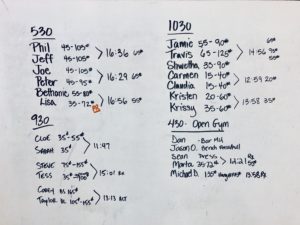 530
Phil 45-105#
Jeff 45-105 16:36
Joe 45-105
Peter 45-95 16:29 65#
Bethanie 55-80
Lisa 35-72# 16:56 55
930
CLOE 35#-55#
SARAH 35# 11:47
STEVE
TESS 35# 15:01 RX
COREY
TAYLOR 13:13
1030
Jamie 55-90#
Travis 65-125# 14:56
Shwetha 35-90
Carmen 15-40
Claudia 15-40 12:59 20#
Kristen 20-60
Krissy 35-60# 13:58 35
430- Open Gym
Dan - Bar MU
Jason O. Bench
Sean Press
Marta 35-72# 14:21
Michael D. 13:58 RX